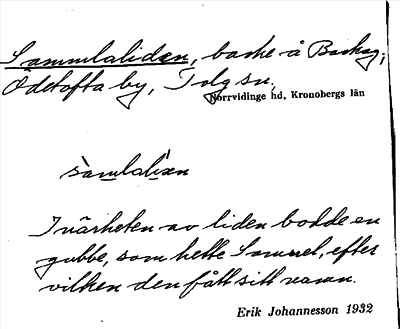 Sammlaliden, backe å Backag;
Ödetofta by, Tolg sn,
Norrvidinge hd, Kronobergs län
sàmlalìən
I närheten av liden bodde en
gubbe, som hette Samuel, efter
vilken den fått sitt namn.
Erik Johannesson 1932